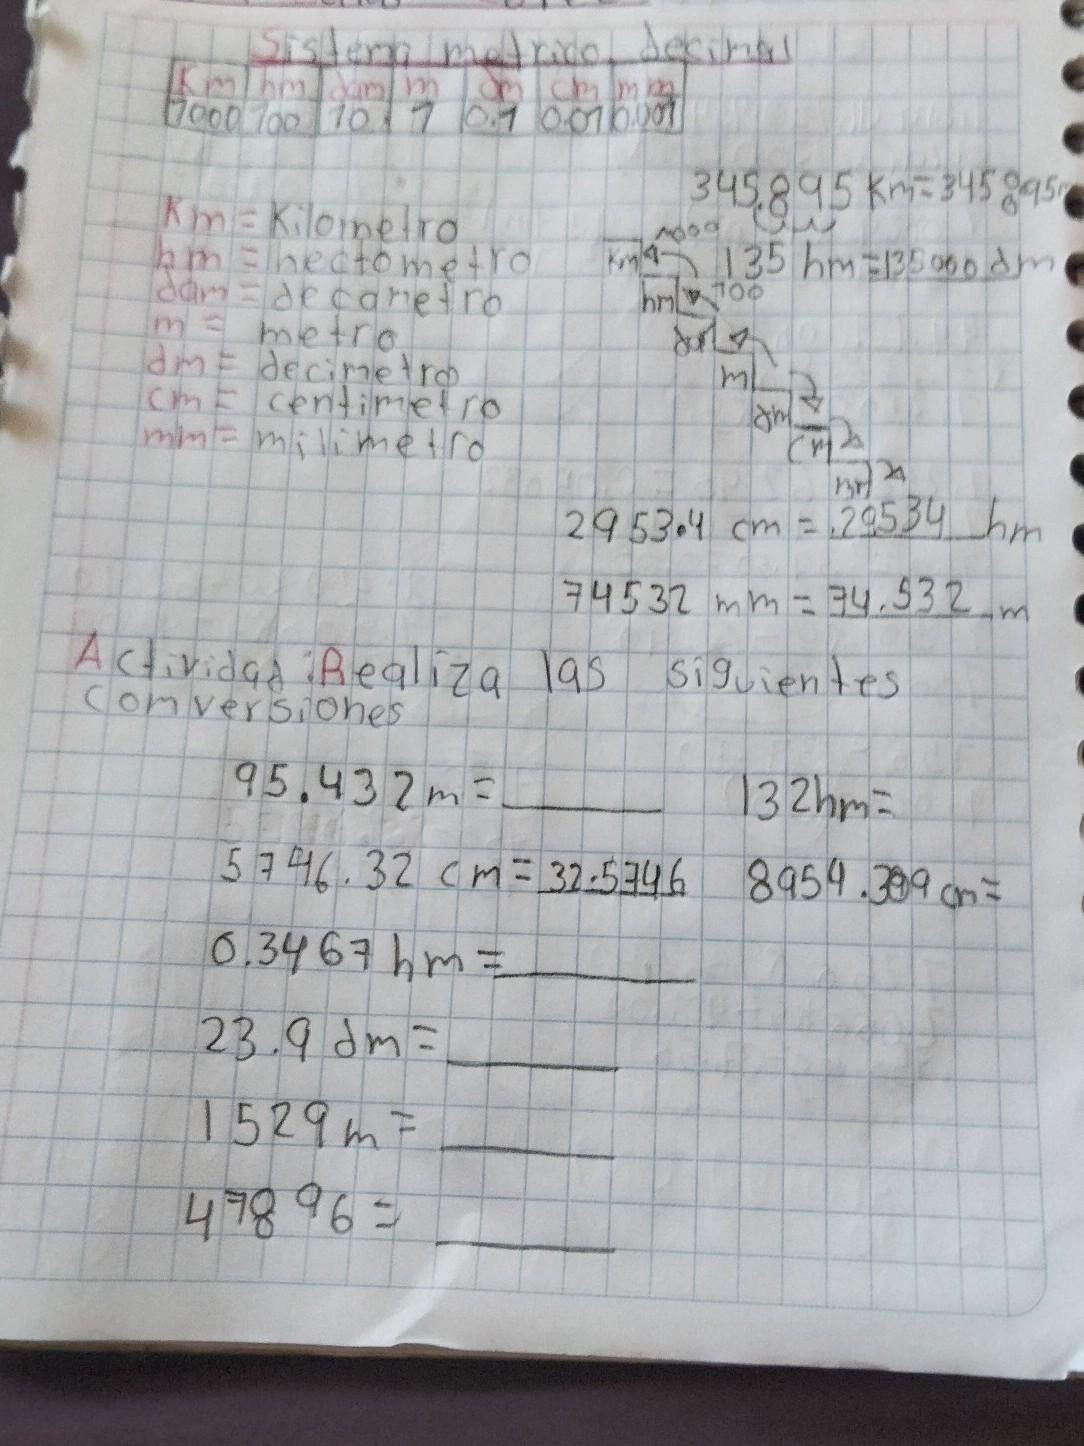 Sistema metrico decimal
Km hm dam m dm cm mm
1000 100 10 1 0.1 0.01 0.001
345.895 Km=345895m
Km=Kilometro
1000
hm=hectometro
Km
135 hm=135000 dm
dam=decametro
hm
100
m= metro
dam
dm= decimetro
m
cm= centimetro
dm
mm= milimetro
cm
2953.4 cm = .29534 hm
74532 mm = 74.532 m
Actividad: Realiza las siguientes
comversiones
95.432m=
132hm=
5746.32 cm=32.5746
8954.309cm=
0.3467hm=
23.9 dm=
1529m=
47896=